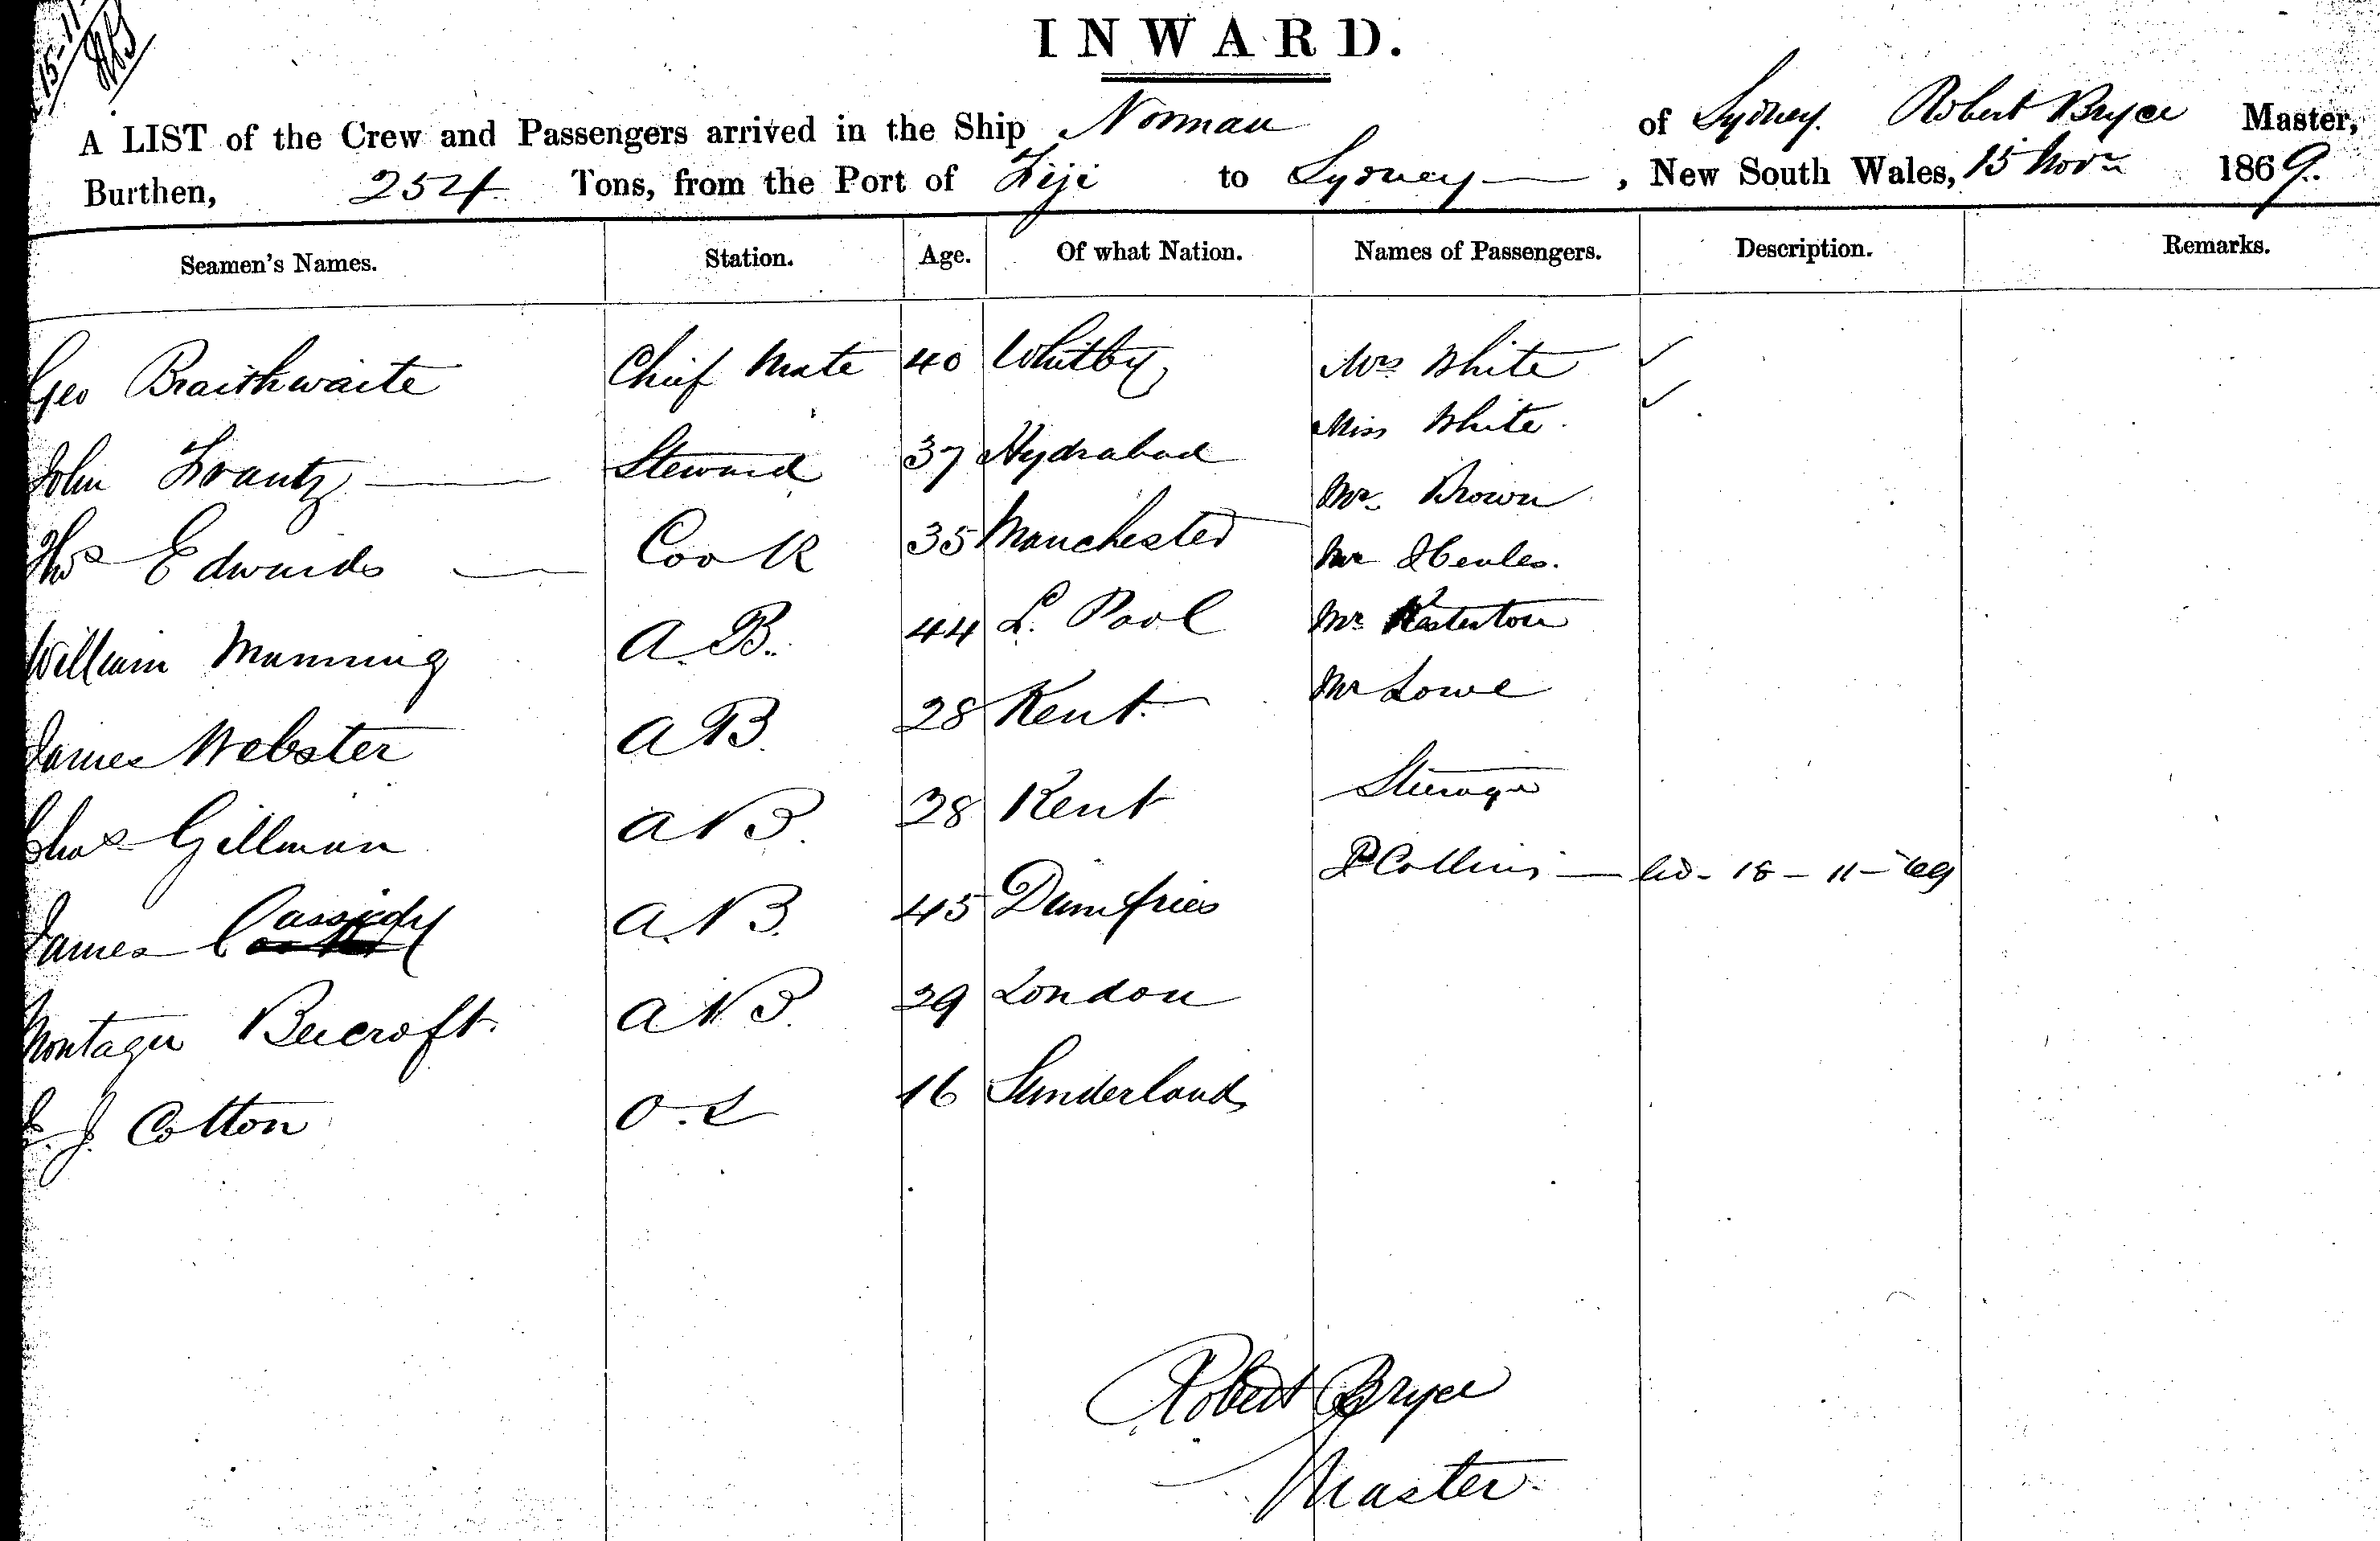 15-11-
INWARD.
A LIST of the Crew and Passengers arrived in the Ship Norman of Sydney. Robert Bryce Master,
Burthen, 254 Tons, from the Port of Fiji to Sydney, New South Wales, 15 Novr 1869.
Seamen's Names. Station. Age. Of what Nation. Names of Passengers. Description. Remarks.
Geo Braithwaite Chief Mate 40 Whitby Mrs White ✓
Miss White. ✓
John Frantz Steward 37 Hydrabad
Mr. Brown
Thos Edwards Cook 35 Manchester
Mr
William Manning A.B. 44 L. Pool Mr
Mr Lowe
James Webster AB. 28 Kent.
Steerage
Chas Gillman AB. 28 Kent
P Collins — 18-11-69
James Cassidy A.B. 45 Dumfries
Montagu Beecroft. AB. 29 London
E. J. Cotton O.S 16 Sunderland
Robert Bryce
Master.